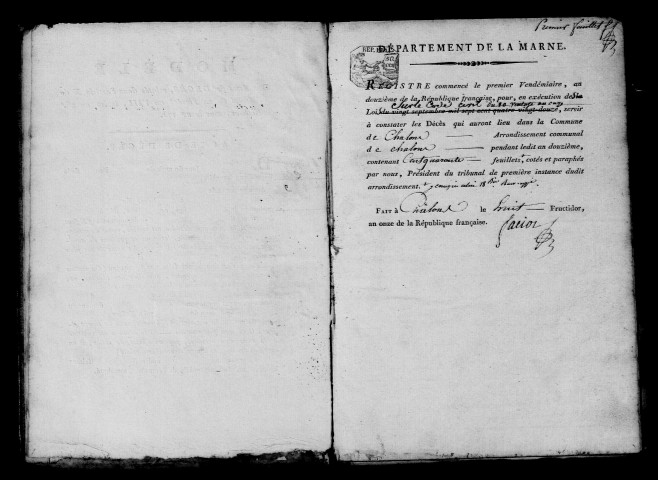 Premier feuillet
RÉP. FRA
DÉPARTEMENT DE LA MARNE.
REGISTRE commencé le premier Vendémiaire, an
douzième de la République française, pour, en exécution de la
Code Civil du
Loi du vingt septembre mil sept cent quatre vingt-douze, servir
à constater les Décès qui auront lieu dans la Commune
de Chalons Arrondissement communal
de chalons pendant ledit an douzième,
contenant feuillets, cotés et paraphés
par nous, Président du tribunal de première instance dudit
arrondissement.
FAIT à Châlons le huit Fructidor,
an onze de la République française.